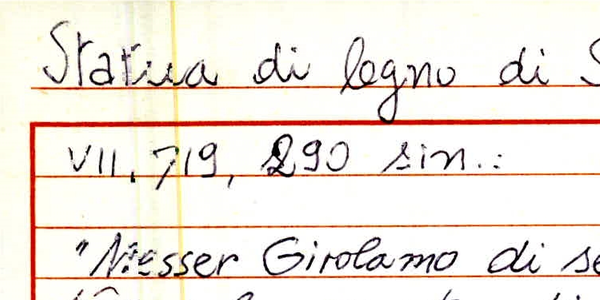 Statua di legno di S
VII. 719, 290 sin.:
"Messer Girolamo di se